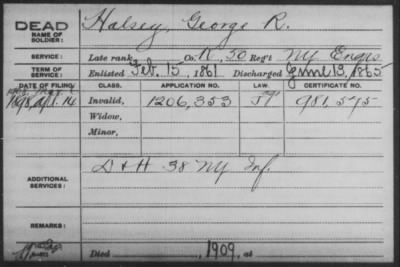 DEAD
NAME OF SOLDIER: Halsey, George R.
SERVICE: Late rank, Co. K, 50 Reg't NY Engrs
TERM OF SERVICE: Enlisted Feb. 15, 1861 Discharged June 13, 1865
DATE OF FILING. CLASS. APPLICATION NO. LAW. CERTIFICATE NO.
1898, Apl. 14 Invalid, 1206,353 981,575
Widow,
Minor,
ADDITIONAL SERVICES: D & H 38 NY Inf.
REMARKS:
Died 1909, at